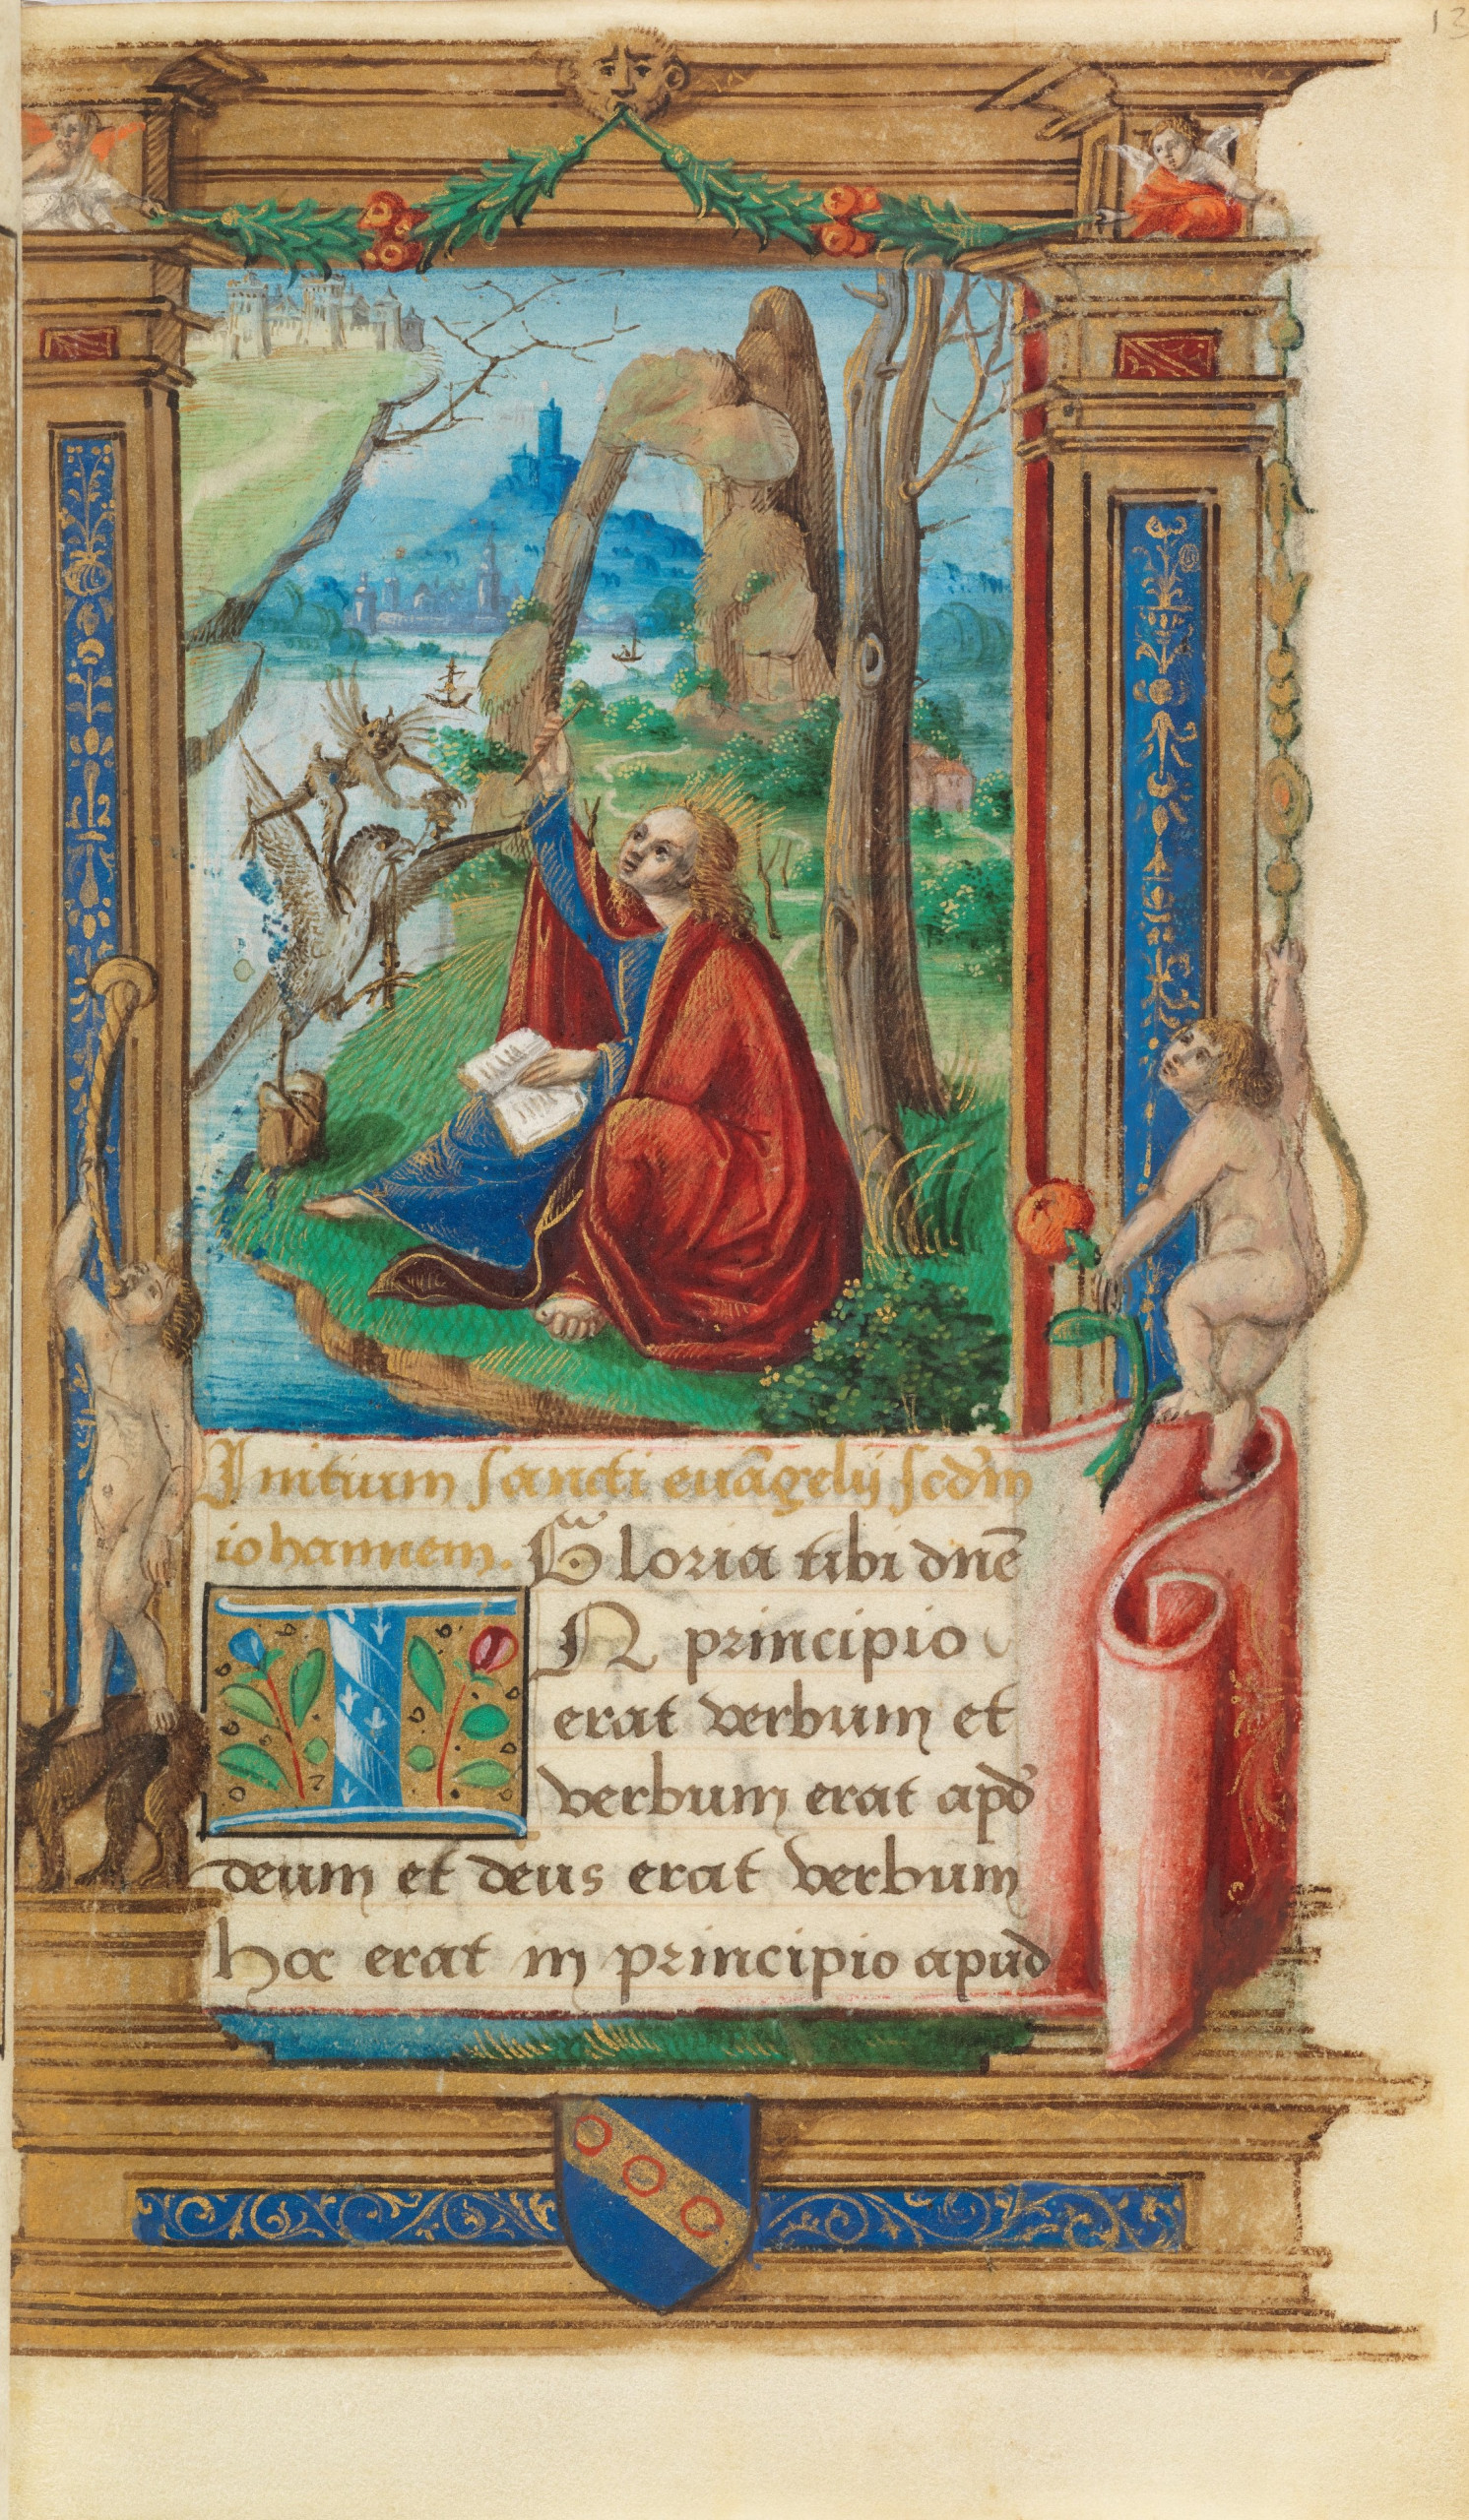 13
Initium sancti euāgelij scd̄m
iohannem. Gloria tibi dn̄e
IN principio
erat verbum et
verbum erat apd̄
deum et deus erat verbum
hoc erat in principio apud